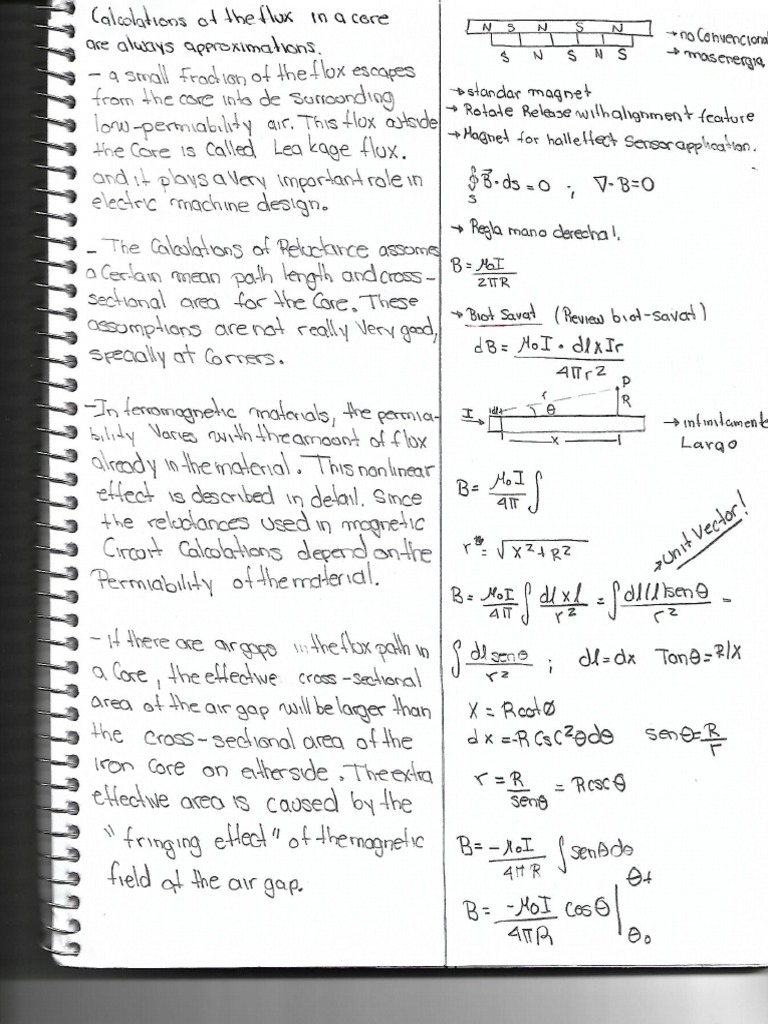 Calculations of the flux in a core
are always approximations.
- a small fraction of the flux escapes
from the core into de surrounding
low-permiability air. This flux outside
the core is called Leakage flux.
and it plays a very important role in
electric machine design.
- The Calculations of Reluctance assumes
a certain mean path length and cross-
sectional area for the core. These
assumptions are not really very good,
specially at corners.
- In ferromagnetic materials, the permia-
bility varies with the amount of flux
already in the material. This nonlinear
effect is described in detail. Since
the reluctances used in magnetic
Circuit Calculations depend on the
Permiability of the material.
- if there are air gaps in the flux path in
a core, the effective cross-sectional
area of the air gap will be larger than
the cross-sectional area of the
iron core on either side. The extra
effective area is caused by the
"fringing effect" of the magnetic
field at the air gap.
N S N S N
S N S N S
→ no Convencional
→ mas energia
→ standar magnet
→ Rotate Release with alignment feature
→ Magnet for hall effect Sensor application.
∮ₛ B⃗·ds = 0 ; ∇·B=0
→ Regla mano derecha!.
B = μ₀I / 2πR
→ Biot Savat (Review biot-savat)
dB = μ₀I · dl x Ir / 4πr²
P
r R
I dl θ
x
→ infinitamente
Largo
B = μ₀I / 4π ∫
r = √x²+R²
→ Unit Vector!
B = μ₀I / 4π ∫ dl x l / r² = ∫ dl(1)senθ / r² =
∫ dl senθ / r² ; dl = dx Tanθ = R/X
X = Rcotθ
dx = -Rcsc²θdθ senθ = R / r
r = R / senθ = Rcscθ
B = -μ₀I / 4πR ∫ senθdθ
B = -μ₀I / 4πR cosθ | θf
θ₀